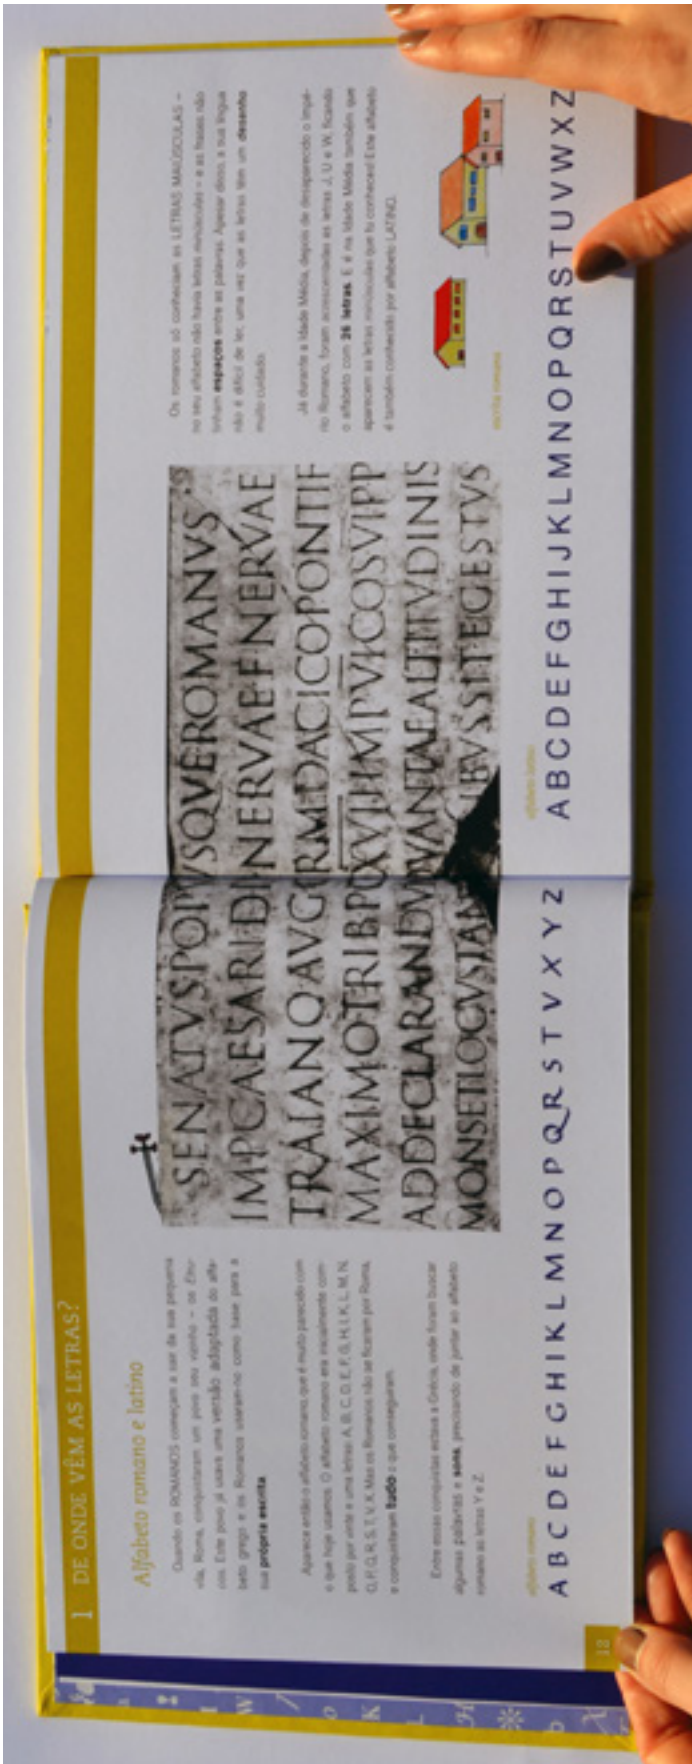 1 DE ONDE VÊM AS LETRAS?
Alfabeto romano e latino
Quando os ROMANOS começam a sair da sua pequena
vila, Roma, conquistaram um povo seu vizinho – os Etru-
cos. Este povo já usava uma versão adaptada do alfa-
beto grego e os Romanos usaram-no como base para a
sua própria escrita.
Aparece então o alfabeto romano, que é muito parecido com
o que hoje usamos. O alfabeto romano era inicialmente com-
posto por vinte e uma letras: A, B, C, D, E, F, G, H, I, K, L, M, N,
O, P, Q, R, S, T, V, X. Mas os Romanos não se ficaram por Roma,
e conquistaram tudo o que conseguiram.
Entre essas conquistas estava a Grécia, onde foram buscar
algumas palavras e sons, precisando de juntar ao alfabeto
romano as letras Y e Z.
alfabeto romano
A B C D E F G H I K L M N O P Q R S T V X Y Z
12
SENATVSPOPVSQVEROMANVS
IMPCAESARIDINERVAEFNERVAE
TRAIANOAVGGRMDACICOPONTIF
MAXIMOTRIBPOXVIIIMPVICOSVIPP
ADDECLARANDVMVANTAEALTITVDINIS
MONSETLOCVSTAN CIBVSSITEGESTVS
Os romanos só conheciam as LETRAS MAIÚSCULAS –
no seu alfabeto não havia letras minúsculas – e as frases não
tinham espaços entre as palavras. Apesar disso, a sua língua
não é difícil de ler, uma vez que as letras têm um desenho
muito cuidado.
Já durante a Idade Média, depois de desaparecido o Impé-
rio Romano, foram acrescentadas as letras J, U e W, ficando
o alfabeto com 26 letras. E é na Idade Média também que
aparecem as letras minúsculas que tu conheces! Este alfabeto
é também conhecido por alfabeto LATINO.
escrita romana
alfabeto latino
A B C D E F G H I J K L M N O P Q R S T U V W X Z